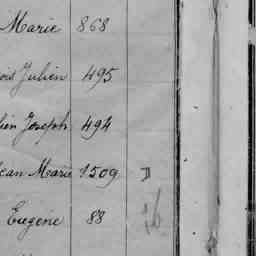 Marie 868
ois Julien 495
ien Joseph 494
Jean Marie 1509 D
Eugène 88